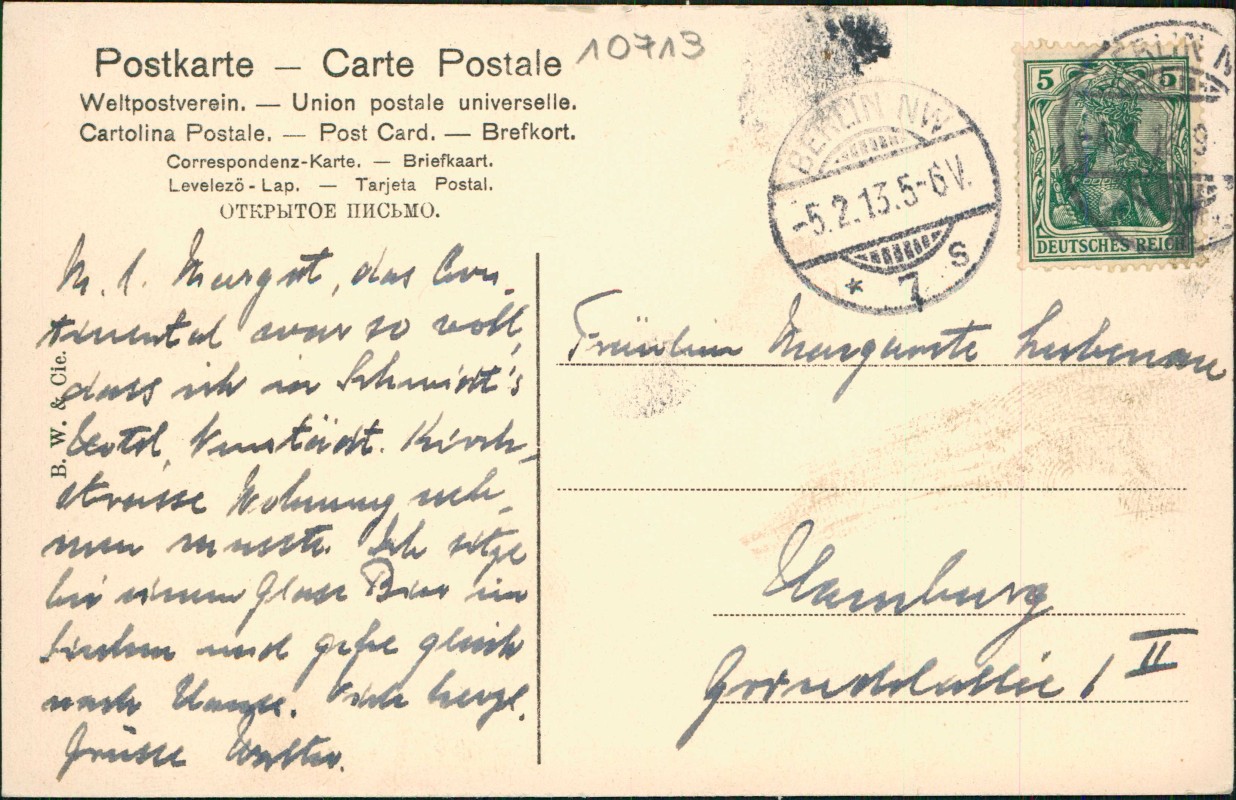 10713
Postkarte — Carte Postale
Weltpostverein. — Union postale universelle.
Cartolina Postale. — Post Card. — Brefkort.
Correspondenz-Karte. — Briefkaart.
Levelezö-Lap. — Tarjeta Postal.
ОТКРЫТОЕ ПИСЬМО.
BERLIN NW
-5.2.13.5-6V.
* 7 s
5 5
DEUTSCHES REICH
BERLIN N
B. W. & Cie.
M. l. Margot, das Con-
tinental war so voll,
dass ich in Schmidt's
Hotel, Neustädt. Kirch-
strasse Wohnung neh-
men musste. Ich sitze
bei einem Glase Bier im
und gehe gleich
nach Hause. Viele herzl.
Grüsse Walter.
Fräulein Margarete Lubenau
Hamburg
Grindelallee 1 II